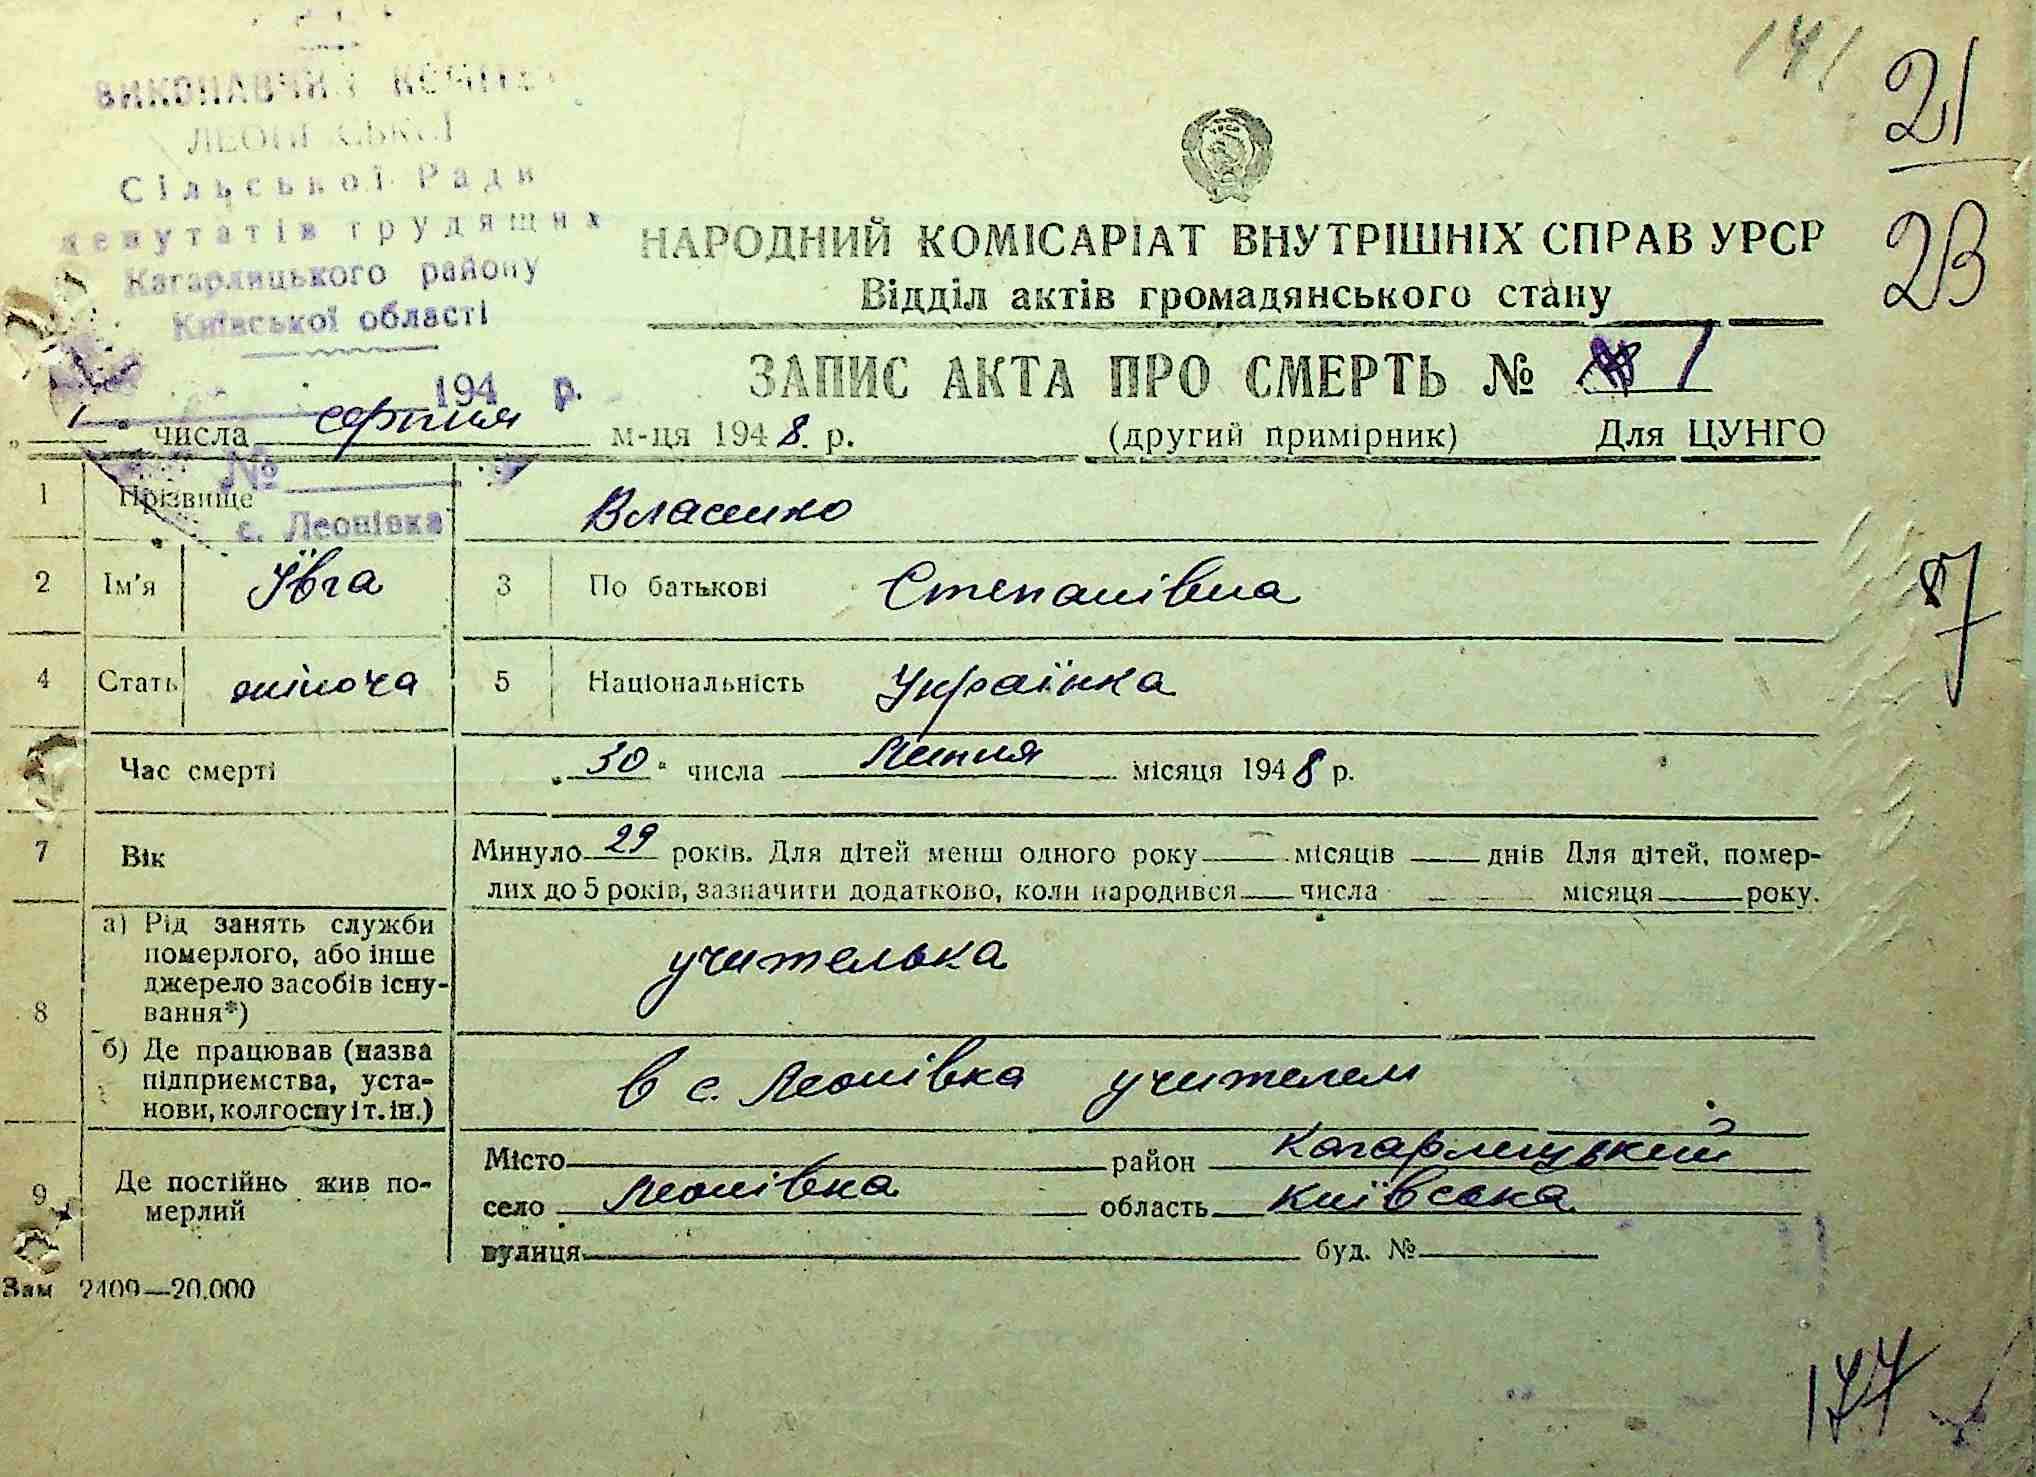 141
21
23
ВИКОНАВЧИЙ КОМІТЕТ
ЛЕОНІВСЬКОЇ
Сільської Ради
депутатів трудящих
Кагарлицького району
Київської області
194 р.
№
с. Леонівка
УРСР
НАРОДНИЙ КОМІСАРІАТ ВНУТРІШНІХ СПРАВ УРСР
Відділ актів громадянського стану
ЗАПИС АКТА ПРО СМЕРТЬ № 1
„ 1 " числа серпня м-ця 1948. р. (другий примірник) Для ЦУНГО
1 Прізвище Власенко
2 Ім'я Ївга 3 По батькові Степанівна
4 Стать жіноча 5 Національність Українка
7
Час смерті „30" числа Липня місяця 1948 р.
7 Вік Минуло 29 років. Для дітей менш одного року — місяців — днів Для дітей, помер-
лих до 5 років, зазначити додатково, коли народився — числа — місяця — року.
8 а) Рід занять служби
померлого, або інше
джерело засобів існу-
вання*) учителька
б) Де працював (назва
підприємства, уста-
нови, колгоспу і т. ін.) в с. Леонівка учителем
9 Де постійно жив по-
мерлий
Місто район Кагарлицький
село Леонівка область Київська
вулиця буд. №
Зам 2409—20.000
177